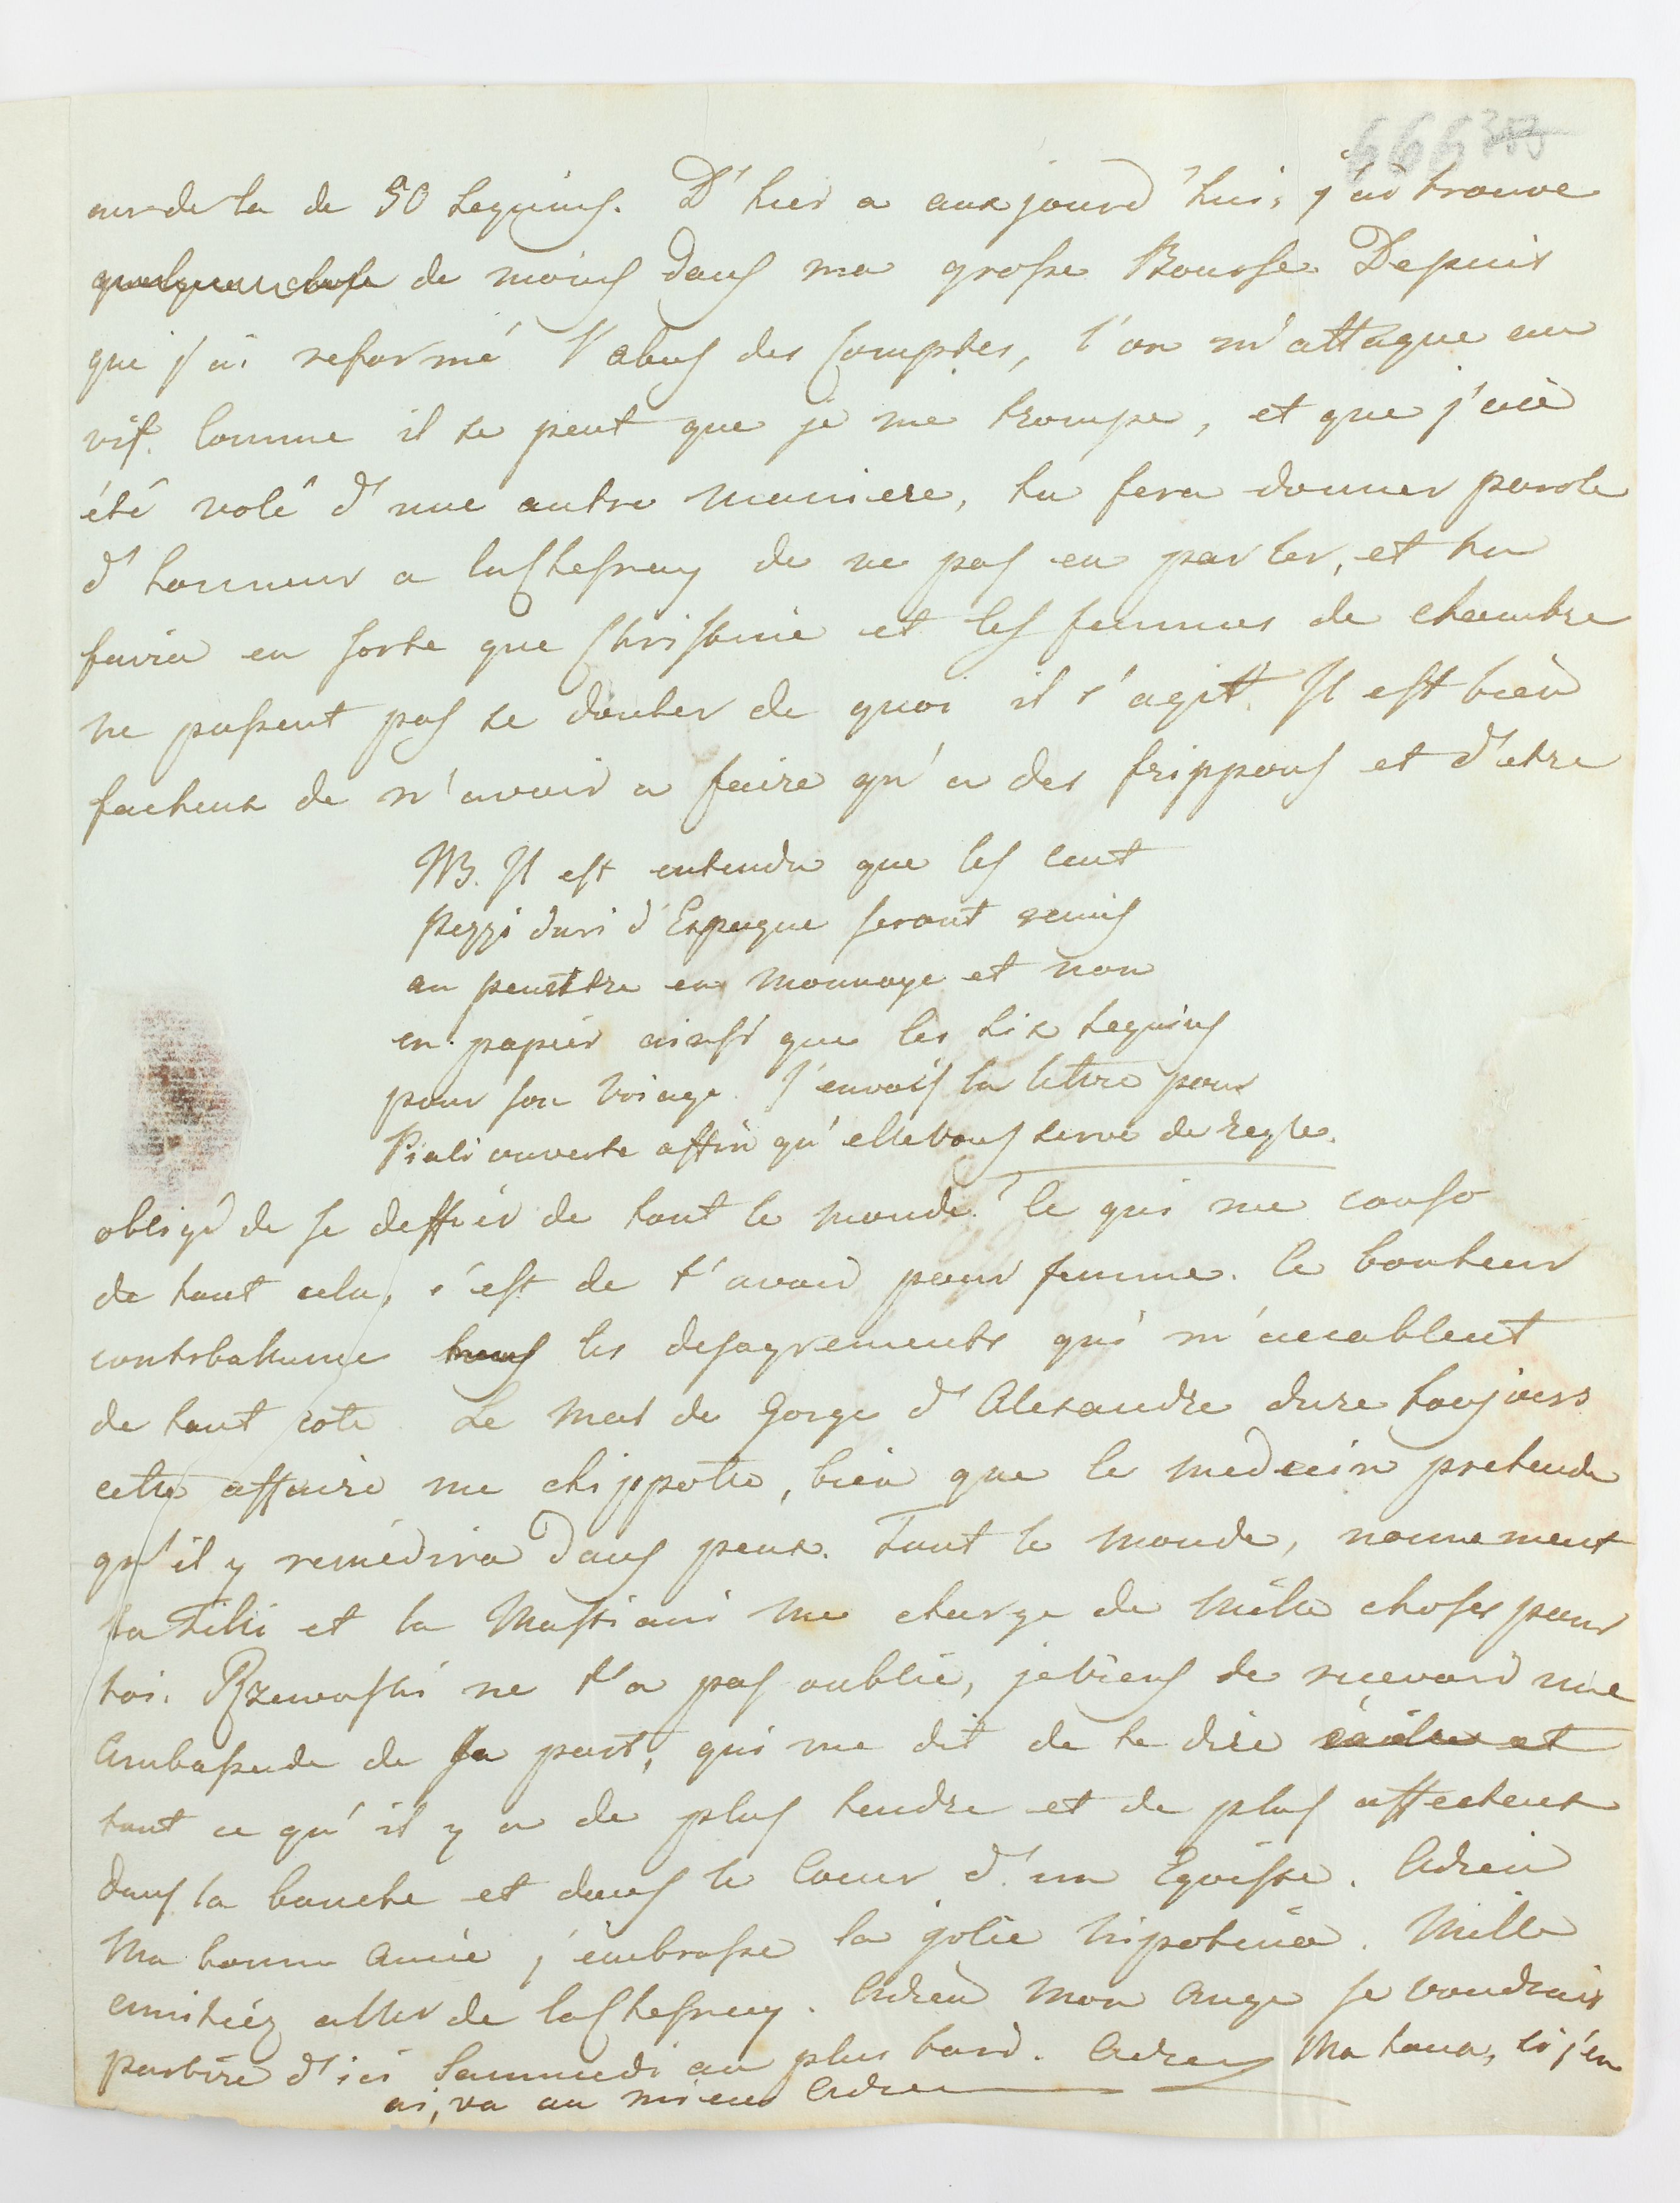 666 353
au-dela de 50 sequins. D'hier a aux jourd'hui, j'ai trouve
quelque chose de moins dans ma grosse Bourse. Depuis
que j'ai reformé l'abus des Comptes, l'on m'attaque au
vif. Comme il se peut que je me trompe, et que j'aie
été volé d'une autre maniere, tu fera donner parole
d'honneur a de ne pas en parler, et tu
faira en sorte que Christine et les femmes de chambre
ne puissent pas se douter de quoi il s'agit. Il est bien
facheux de n'avoir a faire qu'a des frippons et d'etre
NB. Il est entendu que les cent
Pezzi duri d'Espagne seront remis
au peintre en monnoye et non
en papier ainsi que les six sequins
pour son voiage. J'envois la lettre pour
Piali ouverte affin qu'elle vous serve de regle.
obligé de se deffier de tout le monde. Ce qui me conso
de tout cela, c'est de t'avoir pour femme. Ce bonheur
contrbalance tous les desagrements qui m'accablent
de tout coté. Le mal de gorge d'Alexandre dure toujours
cette affaire me chippotte, bien que le medecin pretende
qu'il y remédira dans peux. Tout le monde, nomement
la et la Mastiani me charge de mille choses pour
toi. Rzewuski ne t'a pas oublié, je viens de recevoir une
Ambassade de sa part, qui me dit de te dire
tout ce qu'il y a de plus tendre et de plus affecteux
dans la bouche et dans le Coeur d'un Egoisste. Adieu
Ma bonne Amie, j'embrasse la jolie nipotina. Mille
amitiéz aller de . Adieu mon Ange je voudrais
partire d'ici Sammedi au plus tard. Adieu Ma , si j'en
ai, va au mieux Adieu